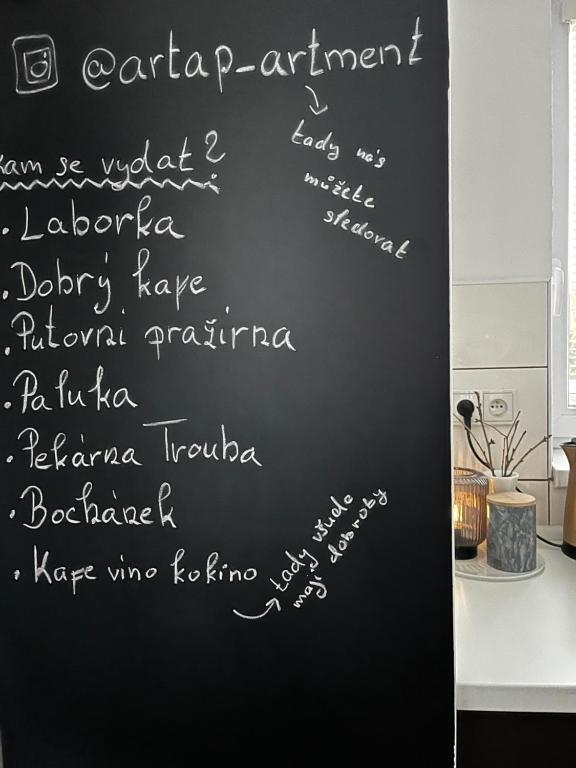 @artap_artment
tady nás
můžete
sledovat
Kam se vydat?
• Laborka
• Dobrý kafe
• Putovní pražírna
• Paluka
• Pekárna Trouba
• Bochánek
• Kafe vino kokino
tady všude
mají dobroby